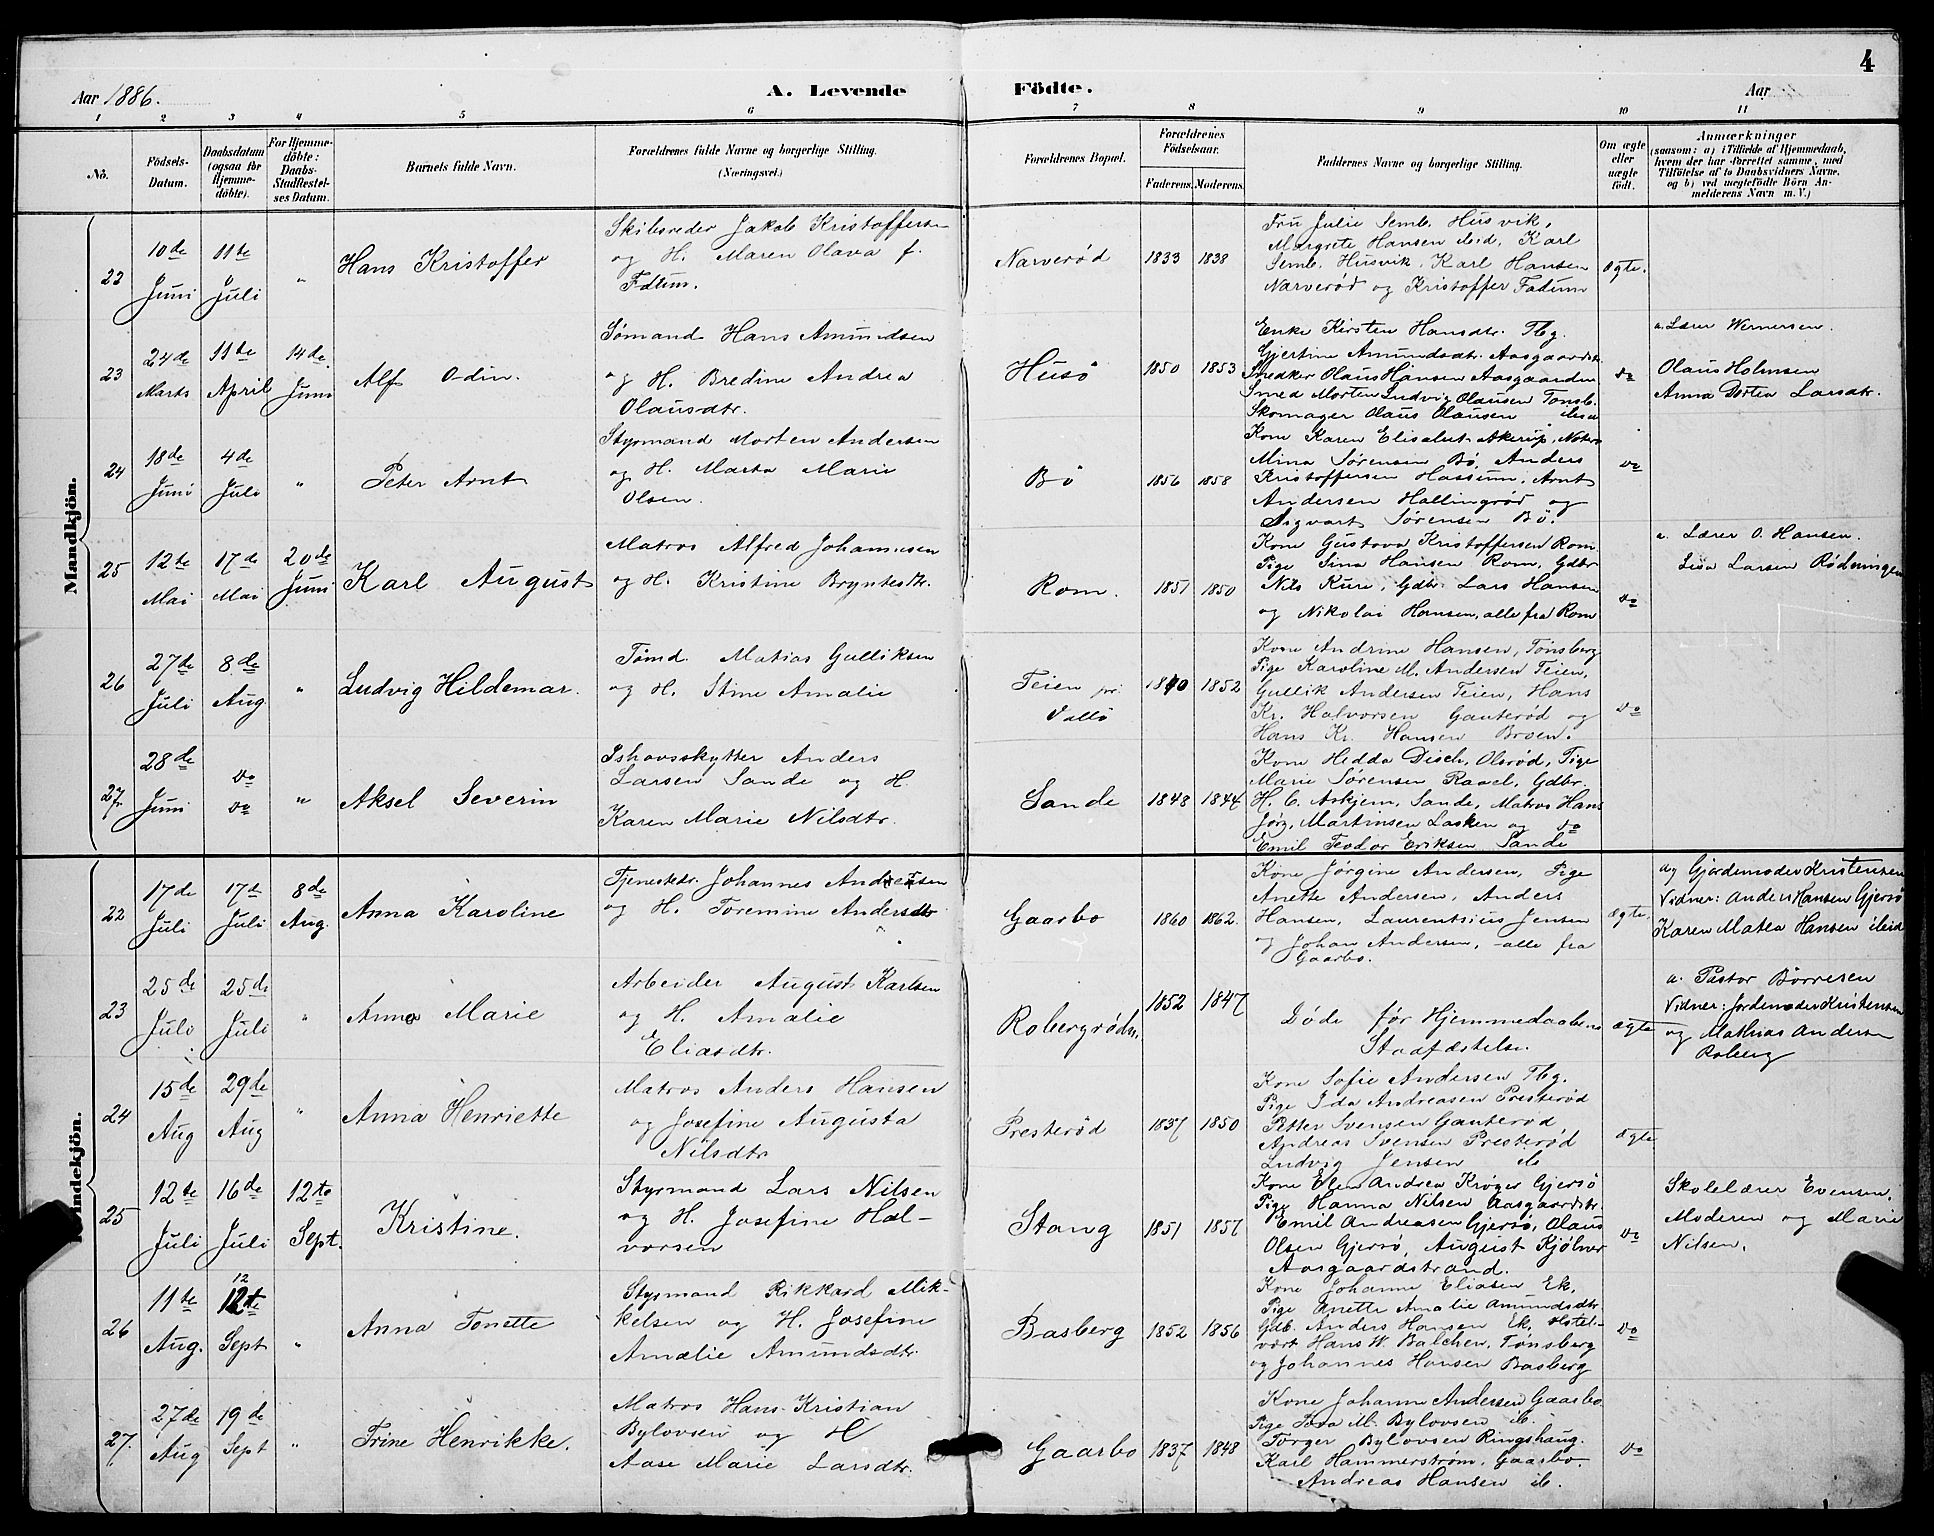 4
Aar 1886.
A. Levende Födte.
Aar
1 2 3 4 5 6 7 8 9 10 11
No.
Födsels-Datum.
Daabsdatum (ogsaa for Hjemme-döbte).
For Hjemme-döbte: Daabs-Stadfæstel-ses Datum.
Barnets fulde Navn.
Forældrenes fulde Navne og borgerlige Stilling. (Næringsvei.)
Forældrenes Bopæl.
Forældrenes Födselsaar.
Faderens. Moderens.
Faddernes Navne og borgerlige Stilling.
Om ægte eller uægte födt.
Anmærkninger
(saasom: a) i Tilfælde af Hjemmedaab, hvem der har forrettet samme, med Tilföielse af to Daabsvidners Navne, og b) ved uægtefödte Börn An-melderens Navn m. V.)
Mandkjön.
22
10de Juni
11te Juli
"
Hans Kristoffer
Skibsreder Jakob Kristoffersen
og H. Maren Olava f.
Fdum.
Narverød
1833 1838
Fru Julie Semb. Husvik,
Margrete Hansen ibid, Karl
Semb. Husvik, Karl Hansen
Narverød og Kristoffer Fadum
Ægte.
23
24de Marts
11te April
14de Juni
Alf Odin.
Sømand Hans Amundsen
og H. Bredine Andrea
Olausdtr.
Husø
1850 1853
Enke Kirsten Hansdtr. Tbg.
Gjertine Amundsdtr. Aasgaardstr.
Snedker Olaus Hansen Aasgaarden
Smed Morten Ludvig Olausen Tønsb.
Skomager Olaus Olausen ibid
do
a. Lærer Wernersen.
Olaus Holmsen
Anna Dortea Larsdtr.
24
18de Juni
4de Juli
"
Peter Arnt
Styrmand Morten Andersen
og H. Marta Marie
Olsen.
Bö
1856 1858
Kone Karen Elisabet Akerup, Notero
Mina Sørensen Bö, Anders
Kristoffersen Hassum, Arnt
Andersen Hallingrød og
Sigvart Sørensen Bö.
do
25
12te Mai
17de Mai
20de Juni
Karl August
Matros Alfred Johannesen
og H. Kristine Bryntesdtr.
Rom.
1851 1850
Kone Gustava Kristoffersen Rom
Pige Sina Hansen Rom, Gdbr
Nils Kure, Gdbr. Lars Hansen
og Nikolai Hansen, alle fra Rom
do
a. Lærer O. Hansen.
Lisa Larsen Rødningen
26
27de Juli
8de Aug
"
Ludvig Hildemar.
Tømd. Matias Gulliksen
og H. Stine Amalie
Teien pr.
Vallö
1840 1852
Kone Andrine Hansen, Tønsberg
Pige Karoline M. Andersen Teien,
Gullik Andersen Teien, Hans
Kr. Halvorsen Gauterød og
Hans Kr. Hansen Broen.
do
27
28de Juni
do do
"
Aksel Severin
Ishavsskytter Anders
Larsen Sande og H.
Karen Marie Nilsdtr.
Sande
1848 1844
Kone Hedda Disch, Olsrød, Pige
Marie Sørensen Raael, Gdbr.
H. C. Askjem, Sande, Matros Hans
Jörg. Martinsen Lasken og
Emil Teodor Eriksen Sande
do
Kvindekjön.
22
17de Juli
17de Juli
8de Aug.
Anna Karoline
Tjenestedr. Johannes Andersen
og H. Toremine Andersdtr
Gaarbo
1860 1862.
Kone Jörgine Andersen, Pige
Anette Andersen, Anders
Hansen, Laurentsius Jensen
og Johan Andersen, - alle fra
Gaarbo.
ægte.
a, Gjordemoder Kristensen
Vidner: Anders Hansen Gjersö
Karen Matea Hansen ibid
23
25de Juli
25de Juli
"
Anna Marie
Arbeider August Karlsen
og H. Amalie
Eliasdtr.
Robergrødn.
1852 1847
Döde för Hjemmedaabens
Stadfæstelse.
ægte
a. Pastor Börresen
Vidner: Jordemoder Kristensen
og Mathias Andersen
Roberg
24
15de Aug
29de Aug
"
Anna Henriette
Matros Anders Hansen
og Josefine Augusta
Nilsdtr
Presterød
1837 1850
Kone Sofie Andersen Tbg.
Pige Ida Andreasen Presterød
Petter Svensen Gauterød,
Andreas Svensen Presterød
Ludvig Jensen ib
ægte
25
12te Juli
16de Juli
12te Sept.
Kristine.
Styrmand Lars Nilsen
og H. Josefine Hal-
vorsen
Stang
1851 1857
Kone Elen Andrea Krøger Gjersö
Pige Hanna Nilsen Aasgaardstr.
Emil Andreasen Gjersö, Olaus
Olsen Gjersö, August Kjölner
Aasgaardstrand.
do
Skolelærer Evensen,
Moderen og Marie
Nilsen.
26
11te Aug.
12
12te Sept
"
Anna Tonette
Styrmand Rikkard Mik-
kelsen og H. Josefine
Amalie Amundsdtr.
Basberg
1852 1856
Kone Johanne Eliasen Ek,
Pige Anette Amalie Amundsdtr
Gdb. Anders Hansen Ek, Hotel-
vært Hans W. Balchen, Tønsberg
og Johannes Hansen Basberg
do
27.
27de Aug
19de Sept
"
Trine Henrikke.
Matros Hans Kristian
Bylovsen og H
Aase Marie Larsdtr.
Gaarbo
1837 1848
Kone Johanne Andersen Gaarbo
Pige Tora M. Bylovsen ib.
Torger Bylovsen Ringshaug.
Karl Hammerstrøm, Gaarbo.
Andreas Hansen ib.
do